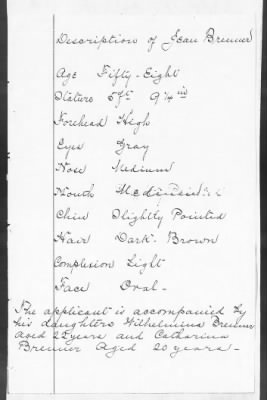 Description of Jean Brenner
Age Fifty-Eight
Stature 5 ft 9 1/4 ins
Forehead High
Eyes Gray
Nose Medium
Mouth
Chin Slightly Pointed
Hair Dark Brown
Complexion Light
Face Oval -
The applicant is accompanied by
his daughters Wilhelmina Brenner
aged 22 years and Catharina
Brenner Aged 20 years -